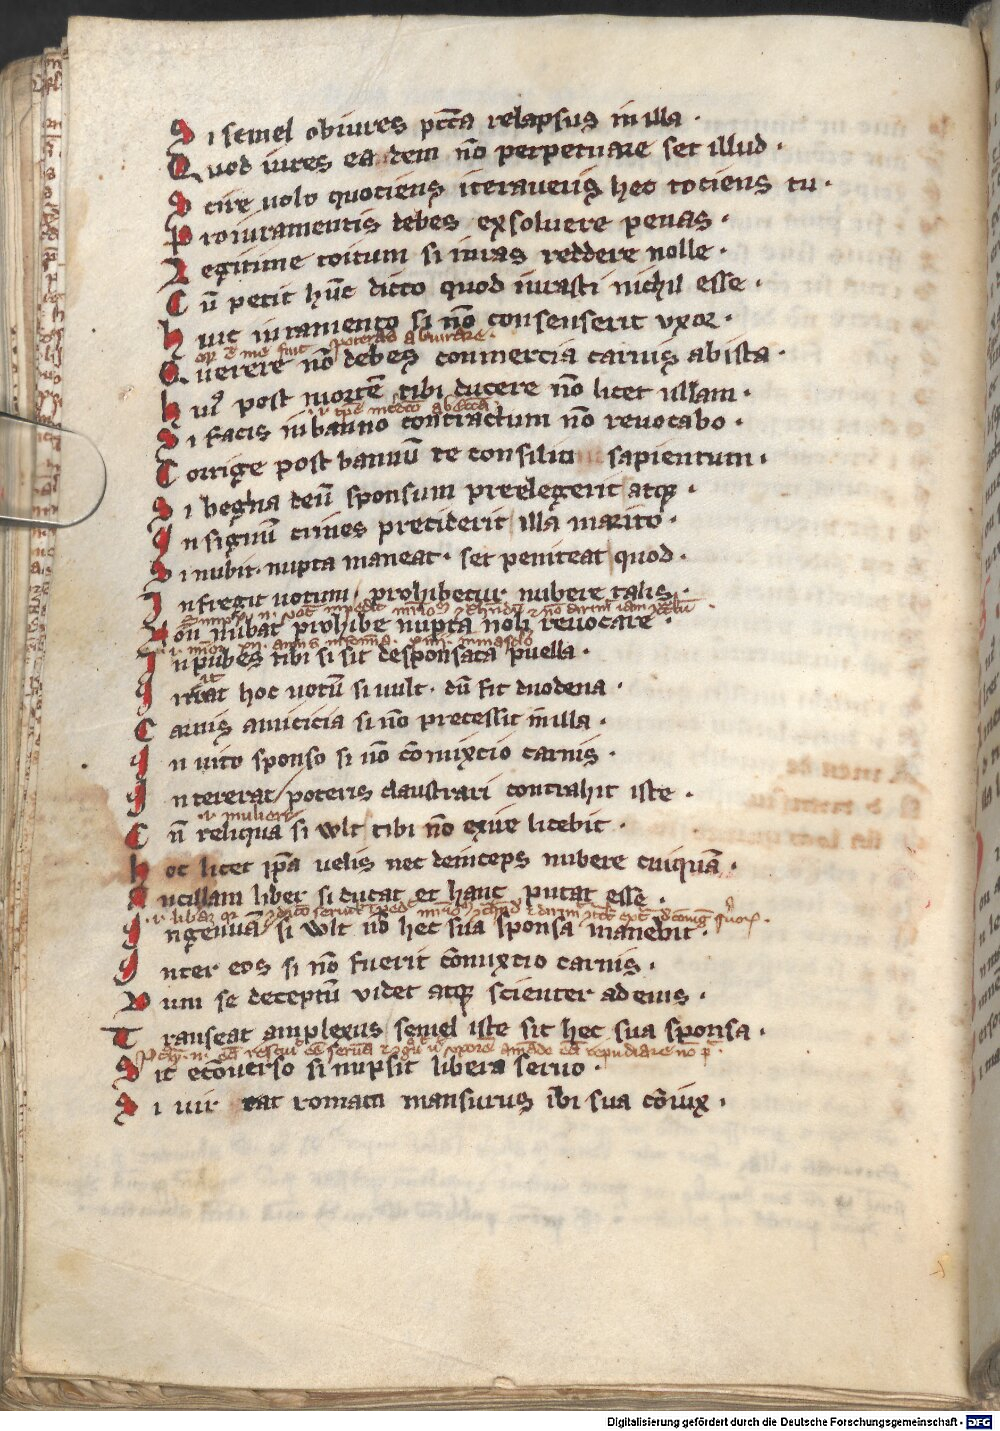 Si semel obiures pcc̄a relapsus in illa .
Quod iures ea dem nō perpetrare set illud .
Scire uolo quotiens iteraueris hec totiens tu .
Pro iuramentis debes exsoluere penas .
Legitime coitum si iuras reddere nolle .
Cū petit hūc dicto quod iurasti nichil esse .
huic iuramento si nō consenserit vxor .
poteras abiurare .
Querere nō debes conmercia carnis ab ista .
hui9 post mortē tibi ducere nō licet ullam .
Si facis in banno contractum nō reuocabo .
Corrige post bannū te consilio sapientum .
Si begina deū sponsum preelegerit atq3 .
In signū crines preciderit illa marito .
Si nubit . nupta maneat . set peniteat quod .
Infregit uotum . prohibetur nubere talis .
Non nubat prohibe nupta noli reuocare .
Inpubes tibi si sit desponsata puella .
at
Irritat hoc uotū si uult . dū fit duodena .
Carnis amicicia si nō precessit in illa .
Inuito sponso si nō cōmixtio carnis .
Intererat / poteris claustrari contrahit iste .
.i. muliere
Cū reliqua si wlt tibi nō exire licebit .
hoc licet ip̄a uelis nec deinceps nubere cuiquā .
Ancillam liber si ducat et hanc putat esse .
Ingenuā si wlt nō hec sua sponsa manebit .
Inter eos si nō fuerit cōmixtio carnis .
Dum se deceptū videt atq3 scienter ad eius .
Transeat amplexus semel iste sit hec sua sponsa .
Sic econuerso si nupsit libera seruo .
Si uir eat romam mansurus ibi sua cōiux .
Digitalisierung gefördert durch die Deutsche Forschungsgemeinschaft - DFG